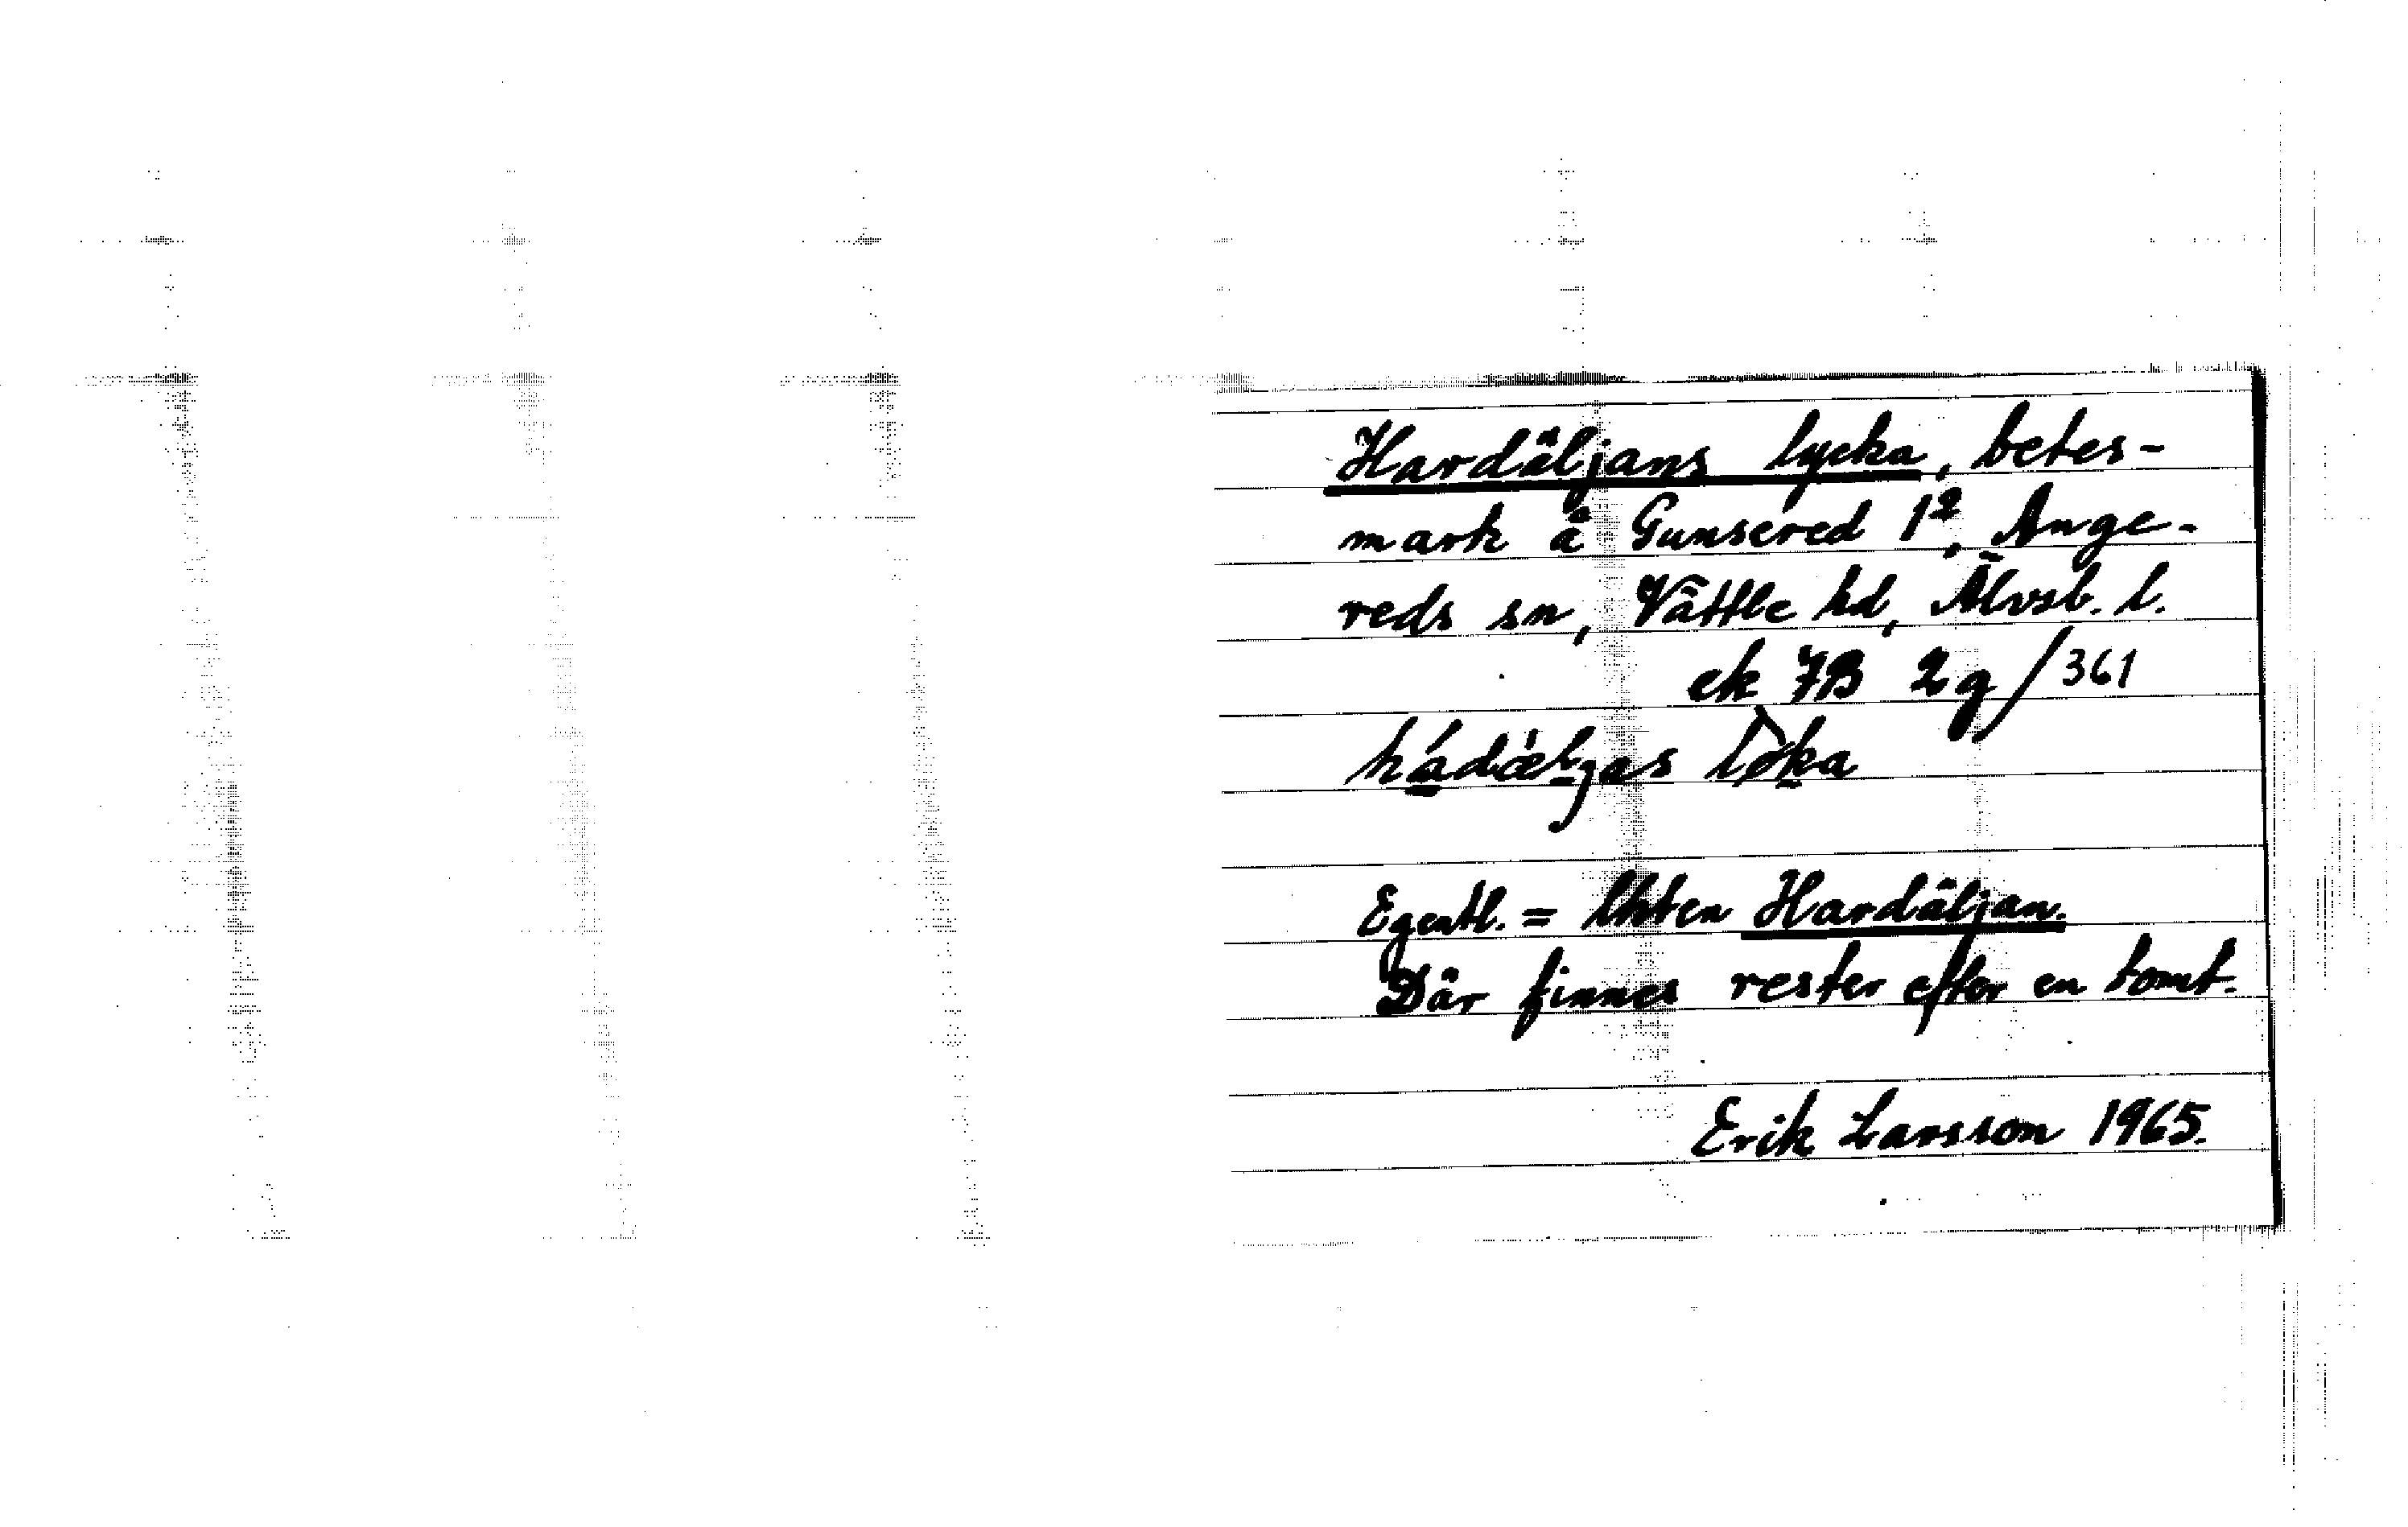 Hardäljans lycka, betes-
mark å Gunsered 1², Ange-
reds sn, Vättle hd, Älvsb. l.
ek 7B 2g/361
Egentl. = lhten Hardäljan.
Där finnes rester efter en tomt.
Erik Larsson 1965.